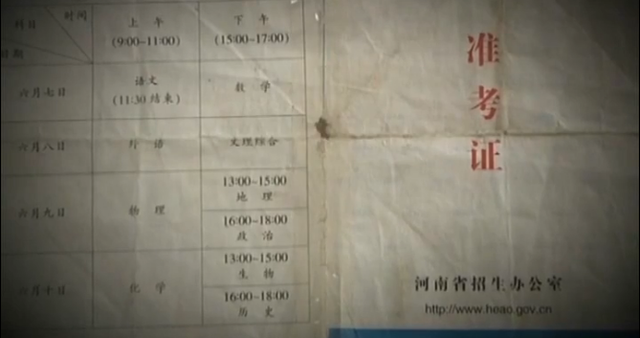 时间
科目
日期
上午
(9:00-11:00)
下午
(15:00-17:00)
六月七日
语文
(11:30 结束)
数学
六月八日
外语
文理综合
六月九日
物理
13:00-15:00
地理
16:00-18:00
政治
六月十日
化学
13:00-15:00
生物
16:00-18:00
历史
准
考
证
河南省招生办公室
http://www.heao.gov.cn